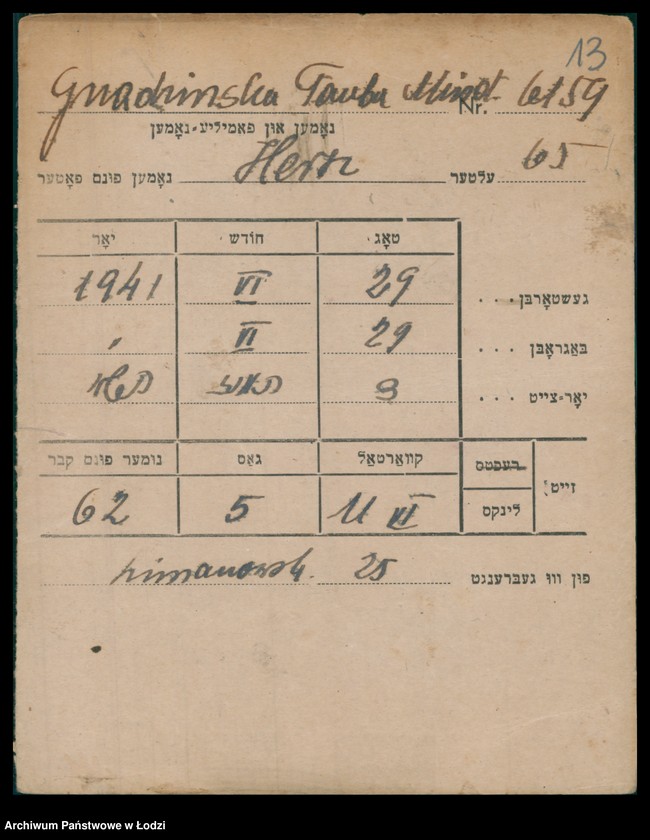 13
Gnadzinska Tauba Mind. Nr. 6159
נאָמען און פאַמיליע-נאָמען
נאָמען פונם פאָטער Hersz עלטער 65
טאָג חודש יאָר
געשטאָרבן . . . 29 VI 1941
באַגראָבן . . . 29 VI "
יאָר-צייט . . . תמוז תש"א
זייט: רעכטס לינקס קוואַרטאַל גאַס נומער פונם קבר
U VI 5 62
פון וואו געברענגט Limanowsk. 25
Archiwum Państwowe w Łodzi